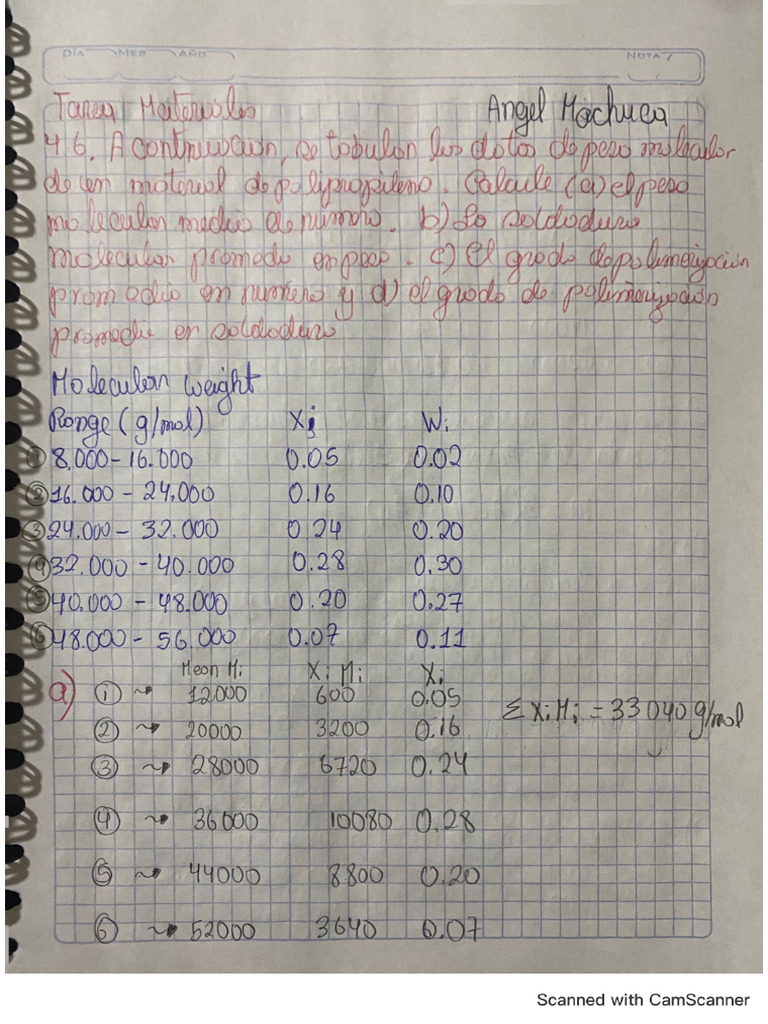 DÍA MES AÑO NOTA
Tarea Materiales Angel Machuca
4.6. A continuación, se tabulan los datos de peso molecular
de un material de polipropileno. Calcule (a) el peso
molecular medio de numero. b) La soldadura
molecular promedio en peso. c) El grado de polimerización
promedio en numero y d) el grado de polimerización
promedio en soldadura
Molecular weight
Range (g/mol) Xi Wi
① 8.000 - 16.000 0.05 0.02
② 16.000 - 24.000 0.16 0.10
③ 24.000 - 32.000 0.24 0.20
④ 32.000 - 40.000 0.28 0.30
⑤ 40.000 - 48.000 0.20 0.27
⑥ 48.000 - 56.000 0.07 0.11
Mean Mi Xi Mi Xi
a) ① 12000 600 0.05 Σ XiMi = 33040 g/mol
② 20000 3200 0.16
③ 28000 6720 0.24
④ 36000 10080 0.28
⑤ 44000 8800 0.20
⑥ 52000 3640 0.07
Scanned with CamScanner